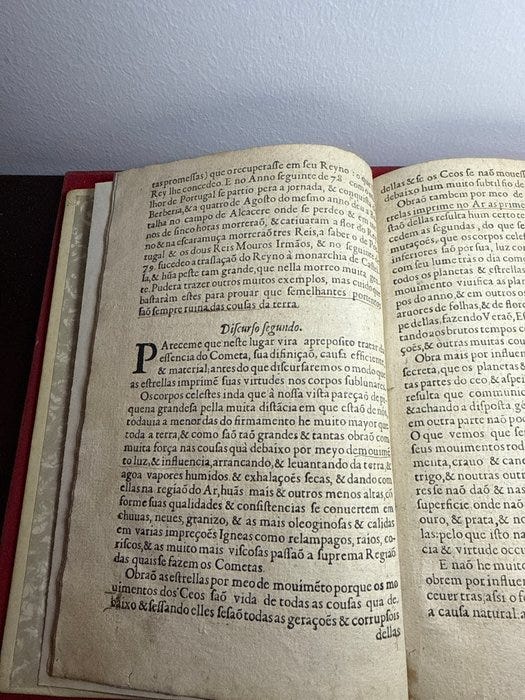 taspromessas) que o recuperasse em seu Reyno
Rey lhe concedeo. E no Anno seguinte de 78
lhor de Portugal se partio pera a jornada, &
Berberia, & a quatro de Agosto do mesmo anno
talha no campo de Alcacere onde se perdeo &
nos de sinco horas morreraõ, & catiuaram a flor do
no & na escaramuça morreraõ tres Reis, a saber o de
tugal & os dous Reis Mouros Irmãos, & no seguinte
79. sucedeo a traslação do Reyno à monarchia de
la, & hũa peste tam grande, que nella morreo muita
te. Pudera trazer outros muitos exemplos, mas cuido
bastaràm estes para prouar que semelhantes
saõ sempre ruina das cousas da terra.
Discurso segundo.
PAreceme que neste lugar vira apreposito tratar da
essencia do Cometa, sua difiniçaõ, causa efficiente
& material; antes do que discursaremos o modo que
as estrellas imprimẽ suas virtudes nos corpos sublunares.
Os corpos celestes inda que à nossa vista pareçaõ de pe-
quena grandesa pella muita distãcia em que estaõ de nòs,
todauia a menor das do firmamento he muito mayor que
toda a terra, & como saõ taõ grandes & tantas obraõ com
muita força nas cousas quà debaixo por meyo de mouimẽ
to luz, & influencia, arrancando, & leuantando da terra, &
agoa vapores humidos & exhalaçoẽs secas, & dando com
ellas na regiaõ do Ar, hũas mais & outros menos altas, cõ
forme suas qualidades & consistencias se conuertem em
chuuas, neues, granizo, & as mais oleoginosas & calidas
em varias impreçoẽs Igneas como relampagos, raios, co-
riscos, & as muito mais viscosas passaõ a suprema Regiaõ
das quais se fazem os Cometas.
Obraõ as estrellas por meo de mouimẽto porque os mo
uimentos dos Ceos saõ vida de todas as cousas qua de-
baixo & sessando elles sesaõ todas as geraçoẽs & corrupsoìs
dellas
dellas & se os Ceos se naõ mouess
debaixo hum muito subtil fio de
Obraõ tambem por meo de
trelas imprime no Ar as prime
staõ dellas resulta hum certo te
cedem as segundas, do que se
mutaçoẽs, que os corpos celes
inferiores saõ por sua, luz co
com seu lume tràs o dia como
todos os planetas & estrellas
mouimento viuifica as plan
pos do anno, & em outros os
aruores de folhas, & de flore
pe dellas, fazendo Veraõ, Es
tando aos brutos tempos c
çoẽs, & outras muitas cou
Obra mais por influen
secreta, que os planetas &
tas partes do ceo, & aspei
resulta que communic
& achando a disposta gè
em outra parte naõ pod
O que vemos que se
seus mouimentos rod
meita, crauo & can
trigo, & noutras outr
res se naõ daõ & nas
superficie onde naõ
ouro, & prata, & no
las: pelo que isto na
cia & virtude occu
E naõ he muito
obrem por influer
ceuer tras; assi o f
a causa natural: a